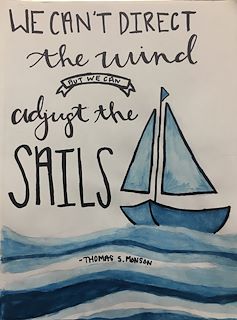 WE CAN'T DIRECT
the wind
BUT WE CAN
adjust the
SAILS
-THOMAS S. MONSON